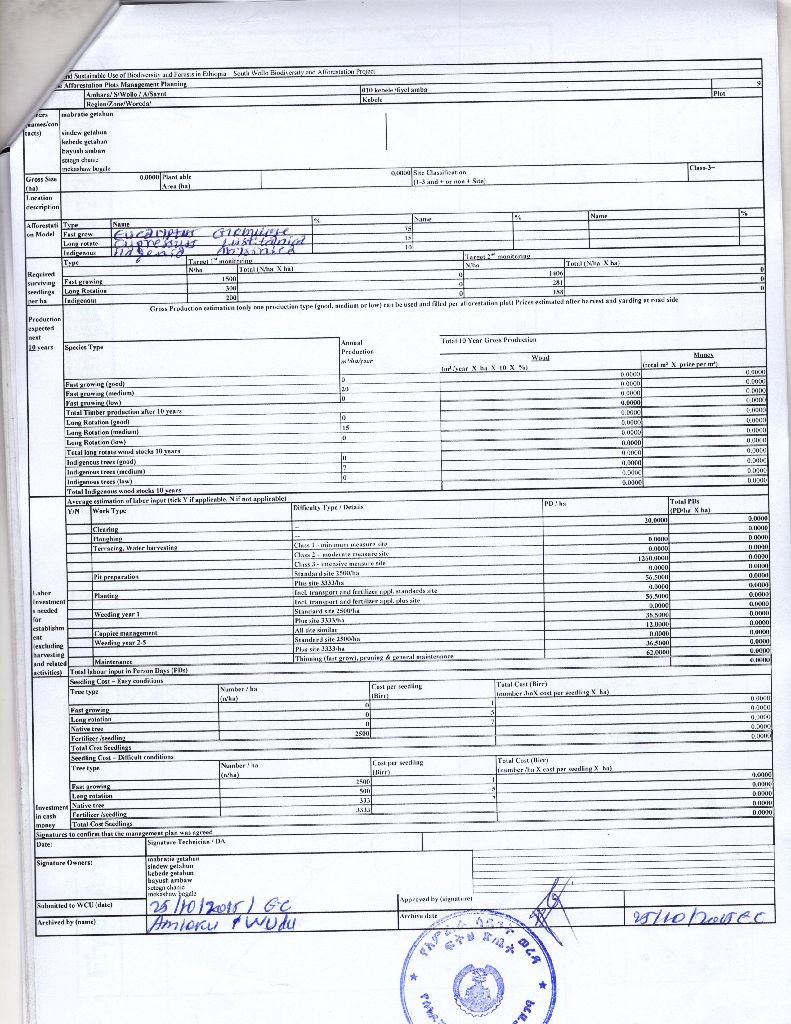 nd Sustainable Use of Biodiversity and Forests in Ethiopia South Wollo Biodiversity and Afforestation Project
Afforestation Plots Management Planning
Amhara/ S/Wollo / A/Saynt 010 kebele /fiyel amba 9
Region/Zone/Woreda/ Kebele Plot
mabratie getahun
names/con
tacts)
sindew getahun
kebede getahun
bayush ambaw
setegn chanie
mekashaw bogale
Gross Size (ha) 0.0000 Plant able Area (ha) 0.0000 Site Classification (1-3 and + or non + Site) Class-3--
Location description
Afforestati on Model Type Name % Name % Name %
Fast grow Eucaliptus 75
Long rotate Cupressus Lusitanica 15
Indigenous Hagenia Abisinica 10
Required surviving seedlings per ha
Type Target 1st monitoring Target 2nd monitoring
N/ha Total (N/ha X ha) N/ha Total (N/ha X ha)
Fast growing 1500 0 1406 0
Long Rotation 300 0 281 0
Indigenous 200 0 188 0
Gross Production estimation (only one production type (good, medium or low) can be used and filled per afforestation plot) Prices estimated after harvest and yarding at road side
Production expected next 10 years
Species Type Annual Production m³/ha/year Total 10 Year Gross Production
Wood Money
(m³/year X ha X 10 X %) (total m³ X price per m³)
Fast growing (good) 0 0.0000 0.0000
Fast growing (medium) 20 0.0000 0.0000
Fast growing (low) 0 0.0000 0.0000
Total Timber production after 10 years 0.0000 0.0000
Long Rotation (good) 0 0.0000 0.0000
Long Rotation (medium) 15 0.0000 0.0000
Long Rotation (low) 0 0.0000 0.0000
Total long rotate wood stocks 10 years 0.0000 0.0000
Indigenous trees (good) 0 0.0000 0.0000
Indigenous trees (medium) 7 0.0000 0.0000
Indigenous trees (low) 0 0.0000 0.0000
Total Indigenous wood stocks 10 years 0.0000 0.0000
Labor investment s needed for establishm ent (excluding harvesting and related activities)
Average estimation of labor input (tick Y if applicable, N if not applicable)
Y/N Work Type Difficulty Type / Details PD / ha Total PDs (PD/ha X ha)
Clearing -- 20.0000 0.0000
Ploughing -- 0.0000
Terracing, Water harvesting Class 1 - minimum measure site 0.0000 0.0000
Class 2 - moderate measure site 0.0000 0.0000
Class 3 - intensive measure site 1260.0000 0.0000
Pit preparation Standard site 2500/ha 0.0000 0.0000
Plus site 3333/ha 56.5000 0.0000
Planting Incl. transport and fertilizer appl. standards site 0.0000 0.0000
Incl. transport and fertilizer appl. plus site 56.5000 0.0000
Weeding year 1 Standard site 2500/ha 0.0000 0.0000
Plus site 3333/ha 36.5000 0.0000
Coppice management All site similar 12.0000 0.0000
Weeding year 2-5 Standard site 2500/ha 0.0000 0.0000
Plus site 3333/ha 36.5000 0.0000
Maintenance Thinning (fast grow), pruning & general maintenance 62.0000 0.0000
Total labour input in Person Days (PDs) 0.0000
Seedling Cost – Easy conditions
Tree type Number / ha (n/ha) Cost per seedling (Birr) Total Cost (Birr) (number /haX cost per seedling X ha)
Fast growing 0 1 0.0000
Long rotation 0 5 0.0000
Native tree 0 7 0.0000
Fertilizer /seedling 2500 0.0000
Total Cost Seedlings 0.0000
Seedling Cost – Difficult conditions
Tree type Number / ha (n/ha) Cost per seedling (Birr) Total Cost (Birr) (number /ha X cost per seedling X ha)
Fast growing 2500 1 0.0000
Long rotation 500 5 0.0000
Native tree 333 7 0.0000
Fertilizer /seedling 3333 0.0000
Total Cost Seedlings 0.0000
Investment in cash money
Signatures to confirm that the management plan was agreed
Date: Signature Technician / DA
Signature Owners: mabratie getahun
sindew getahun
kebede getahun
bayush ambaw
setegn chanie
mekashaw bogale
Submitted to WCU (date) 25/10/2015/ GC Approved by (signature)
Archived by (name) Archive date 25/10/2015 GC